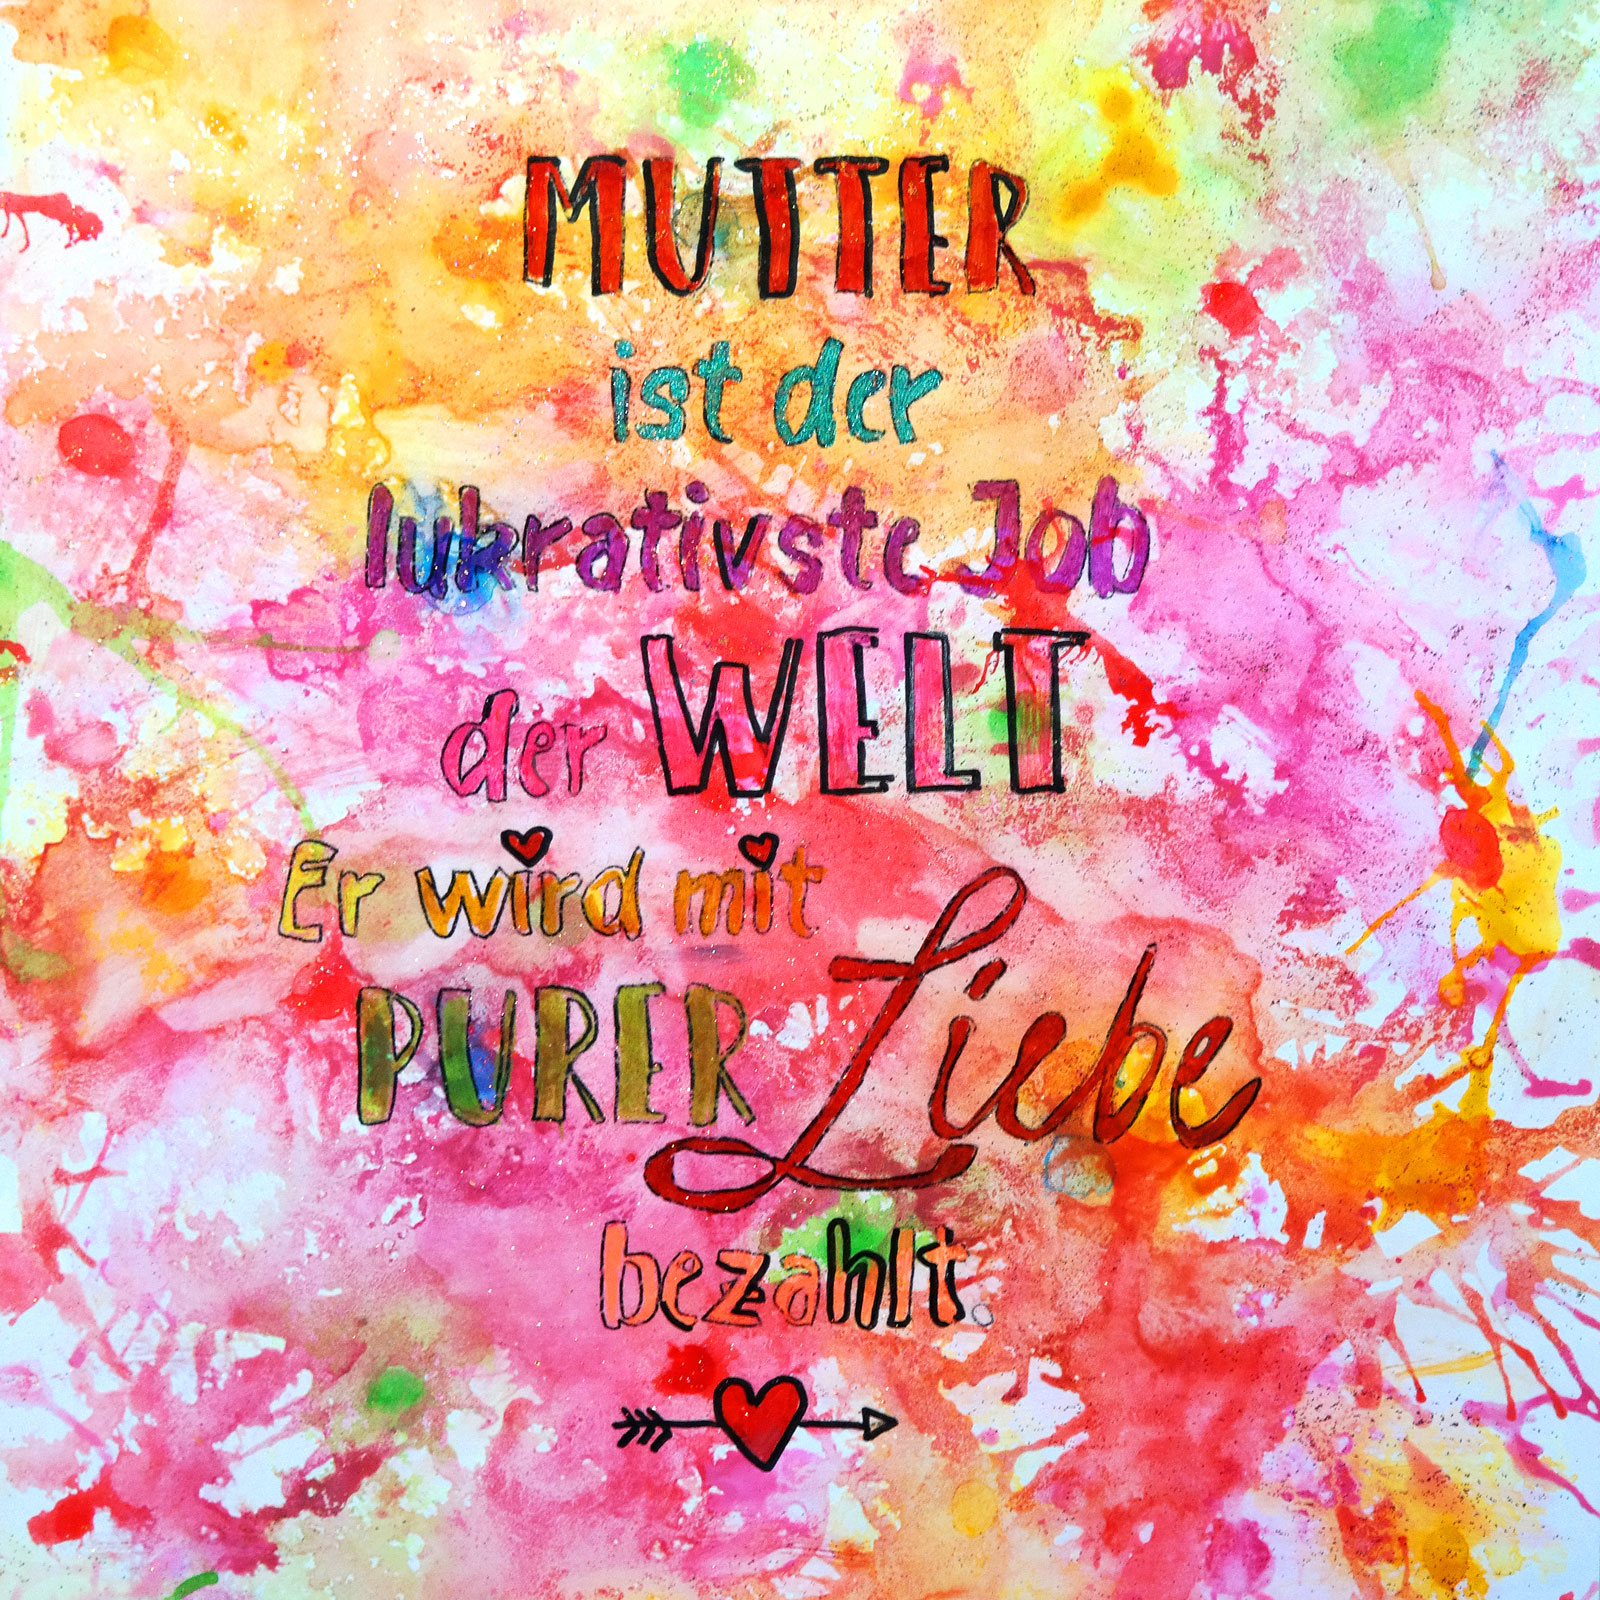 MUTTER
ist der
lukrativste Job
der WELT
Er wird mit
PURER Liebe
bezahlt.